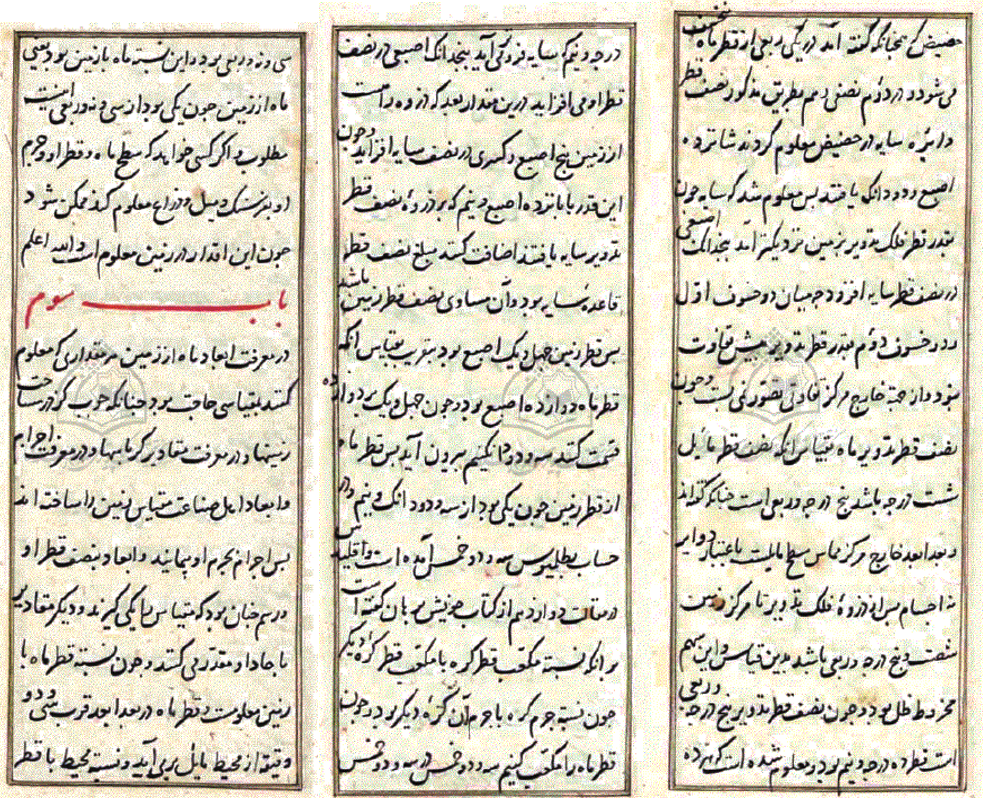 حضیض کرد همچنانکه گفته آمد در یکی ربعی از قطر ماه منخسف
می شود و در دؤم نصفی و هم بطریق مذکور نصف قطر
دایرهٔ سایه در حضیض معلوم کردند شانزده
اصبع و دو دانک یافتند بس معلوم شد که سایه چون
بقدر قطر فلک تدویر بزمین نزدیکتر آمد پنجدانک اصبعی
در نصف قطر سایه افزود چه میان دو خسوف اول
و دو خسوف دؤم بقدر قطر تدویر بیش تفاوت
نبود و از جهة خارج مرکز تفاوتی تصور نی بست و چون
نصف قطر تدویر ماه بمقیاس آنکه نصف قطر مایل
شصت درجه باشد پنج درجه و ربعی است چنانکه گفته اند
و بعد ابعد خارج مرکز مماس سطح مایلست باعتبار دوایر
نه اجسام بس از ذروهٔ فلک تدویر تا مرکز زمین
شصت و پنج درجه و ربعی باشد بدین قیاس و این سهم
مخروط ظل بود و چون نصف قطر تدویر پنج درجه و ربعی
است قطر ده درجه و نیم بود و معلوم شده است که بهر ده
درجه و نیم که سایه فرو می آید پنجدانک اصبعی در نصف
قطر او می افزاید در این مقدار بعد که از ذروه است
از زمین پنج اصبع و کسری در نصف سایه افزاید و چون
این قدر با پانزده اصبع و نیم که بر ذروهٔ نصف قطر
تدویر سایه یافتند اضافت کنند مبلغ نصف قطر
قاعدهٔ سایه بود و آن مساوی نصف قطر زمین باشد
بس قطر زمین چهل و یک اصبع بود بتقریب بمقیاس آنکه
قطر ماه دوازده اصبع بود و چون چهل و یک بر دوازده
قسمت کنند سه و دو دانک و نیم بیرون آید بس قطر ماه
از قطر زمین چون یکی بود از سه و دو دانک و نیم و در
حساب بطلمیوس سه و دو خمس آمده است و اقلیدس
در مقالت دوازدهم از کتاب خویش برهان گفته است
بر آنکه نسبة مکعب قطر کره با مکعب قطر کرهٔ دیگر
چون نسبة جرم کره با جرم آن کرهٔ دیگر بود و چون
قطر ماه را مکعب کنیم سه و دو خمس در سه و دو خمس
سی و نه و ربعی بود و این نسبة ماه با زمین بود یعنی
ماه از زمین چون یکی بود از سی و نه و ربعی اینست
مطلوب و اگر کسی خواهد که سطح ماه و قطر او و جرم
او بفرسنک و میل و ذراع معلوم کند ممکن شود
چون این اقدار در زمین معلوم است و الله اعلم
باب سوم
در معرفت ابعاد ماه از زمین هر مقداری که معلوم
کنند بمقیاسی حاجت بود چنانکه چوب گز در مساحت
زمینها و در معرفت مقادیر کرباسها و در معرفت اجرام
و ابعاد اهل صناعت مقیاس زمین را ساخته اند
بس اجرام بجرم او پیمایند و ابعاد بنصف قطر او
و رسم چنان بود که مقیاس را یکی گیرند و دیگر مقادیر
با جاد او مقدر می کنند و چون نسبة قطر ماه با
زمین معلومست و قطر ماه در بعد ابعد قرب سی و دو
دقیقه از محیط مایل بر می آید و نسبة محیط با قطر